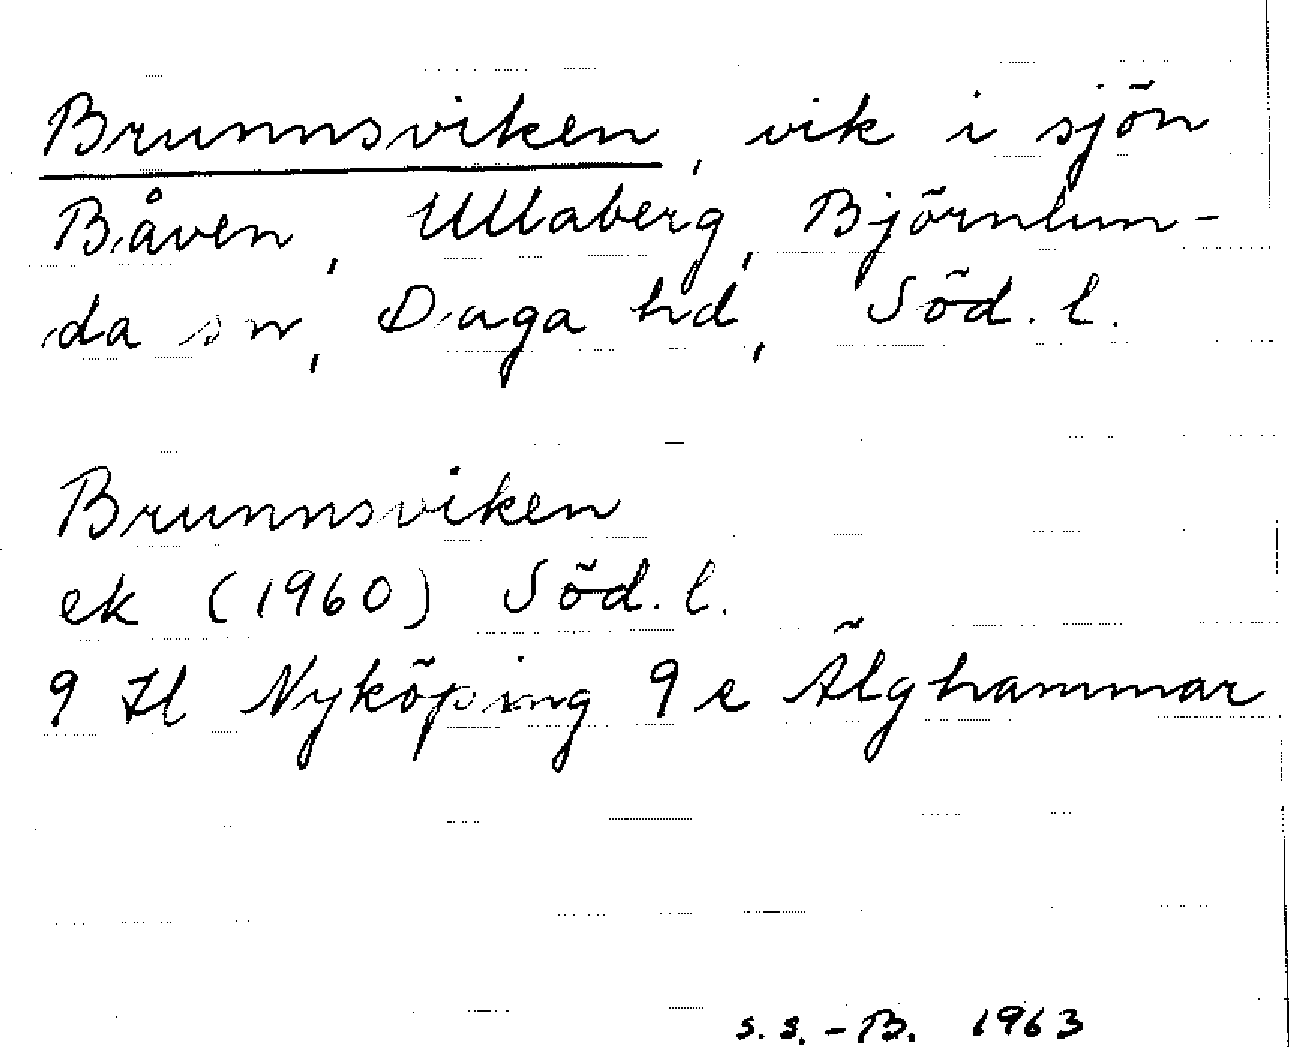 Brunnsviken, vik i sjön
Båven, Ullaberg, Björnlun-
da sn, Daga hd, Söd. l.
Brunnsviken
ek (1960) Söd. l.
9 H Nyköping 9 e Älghammar
s. s. - B. 1963